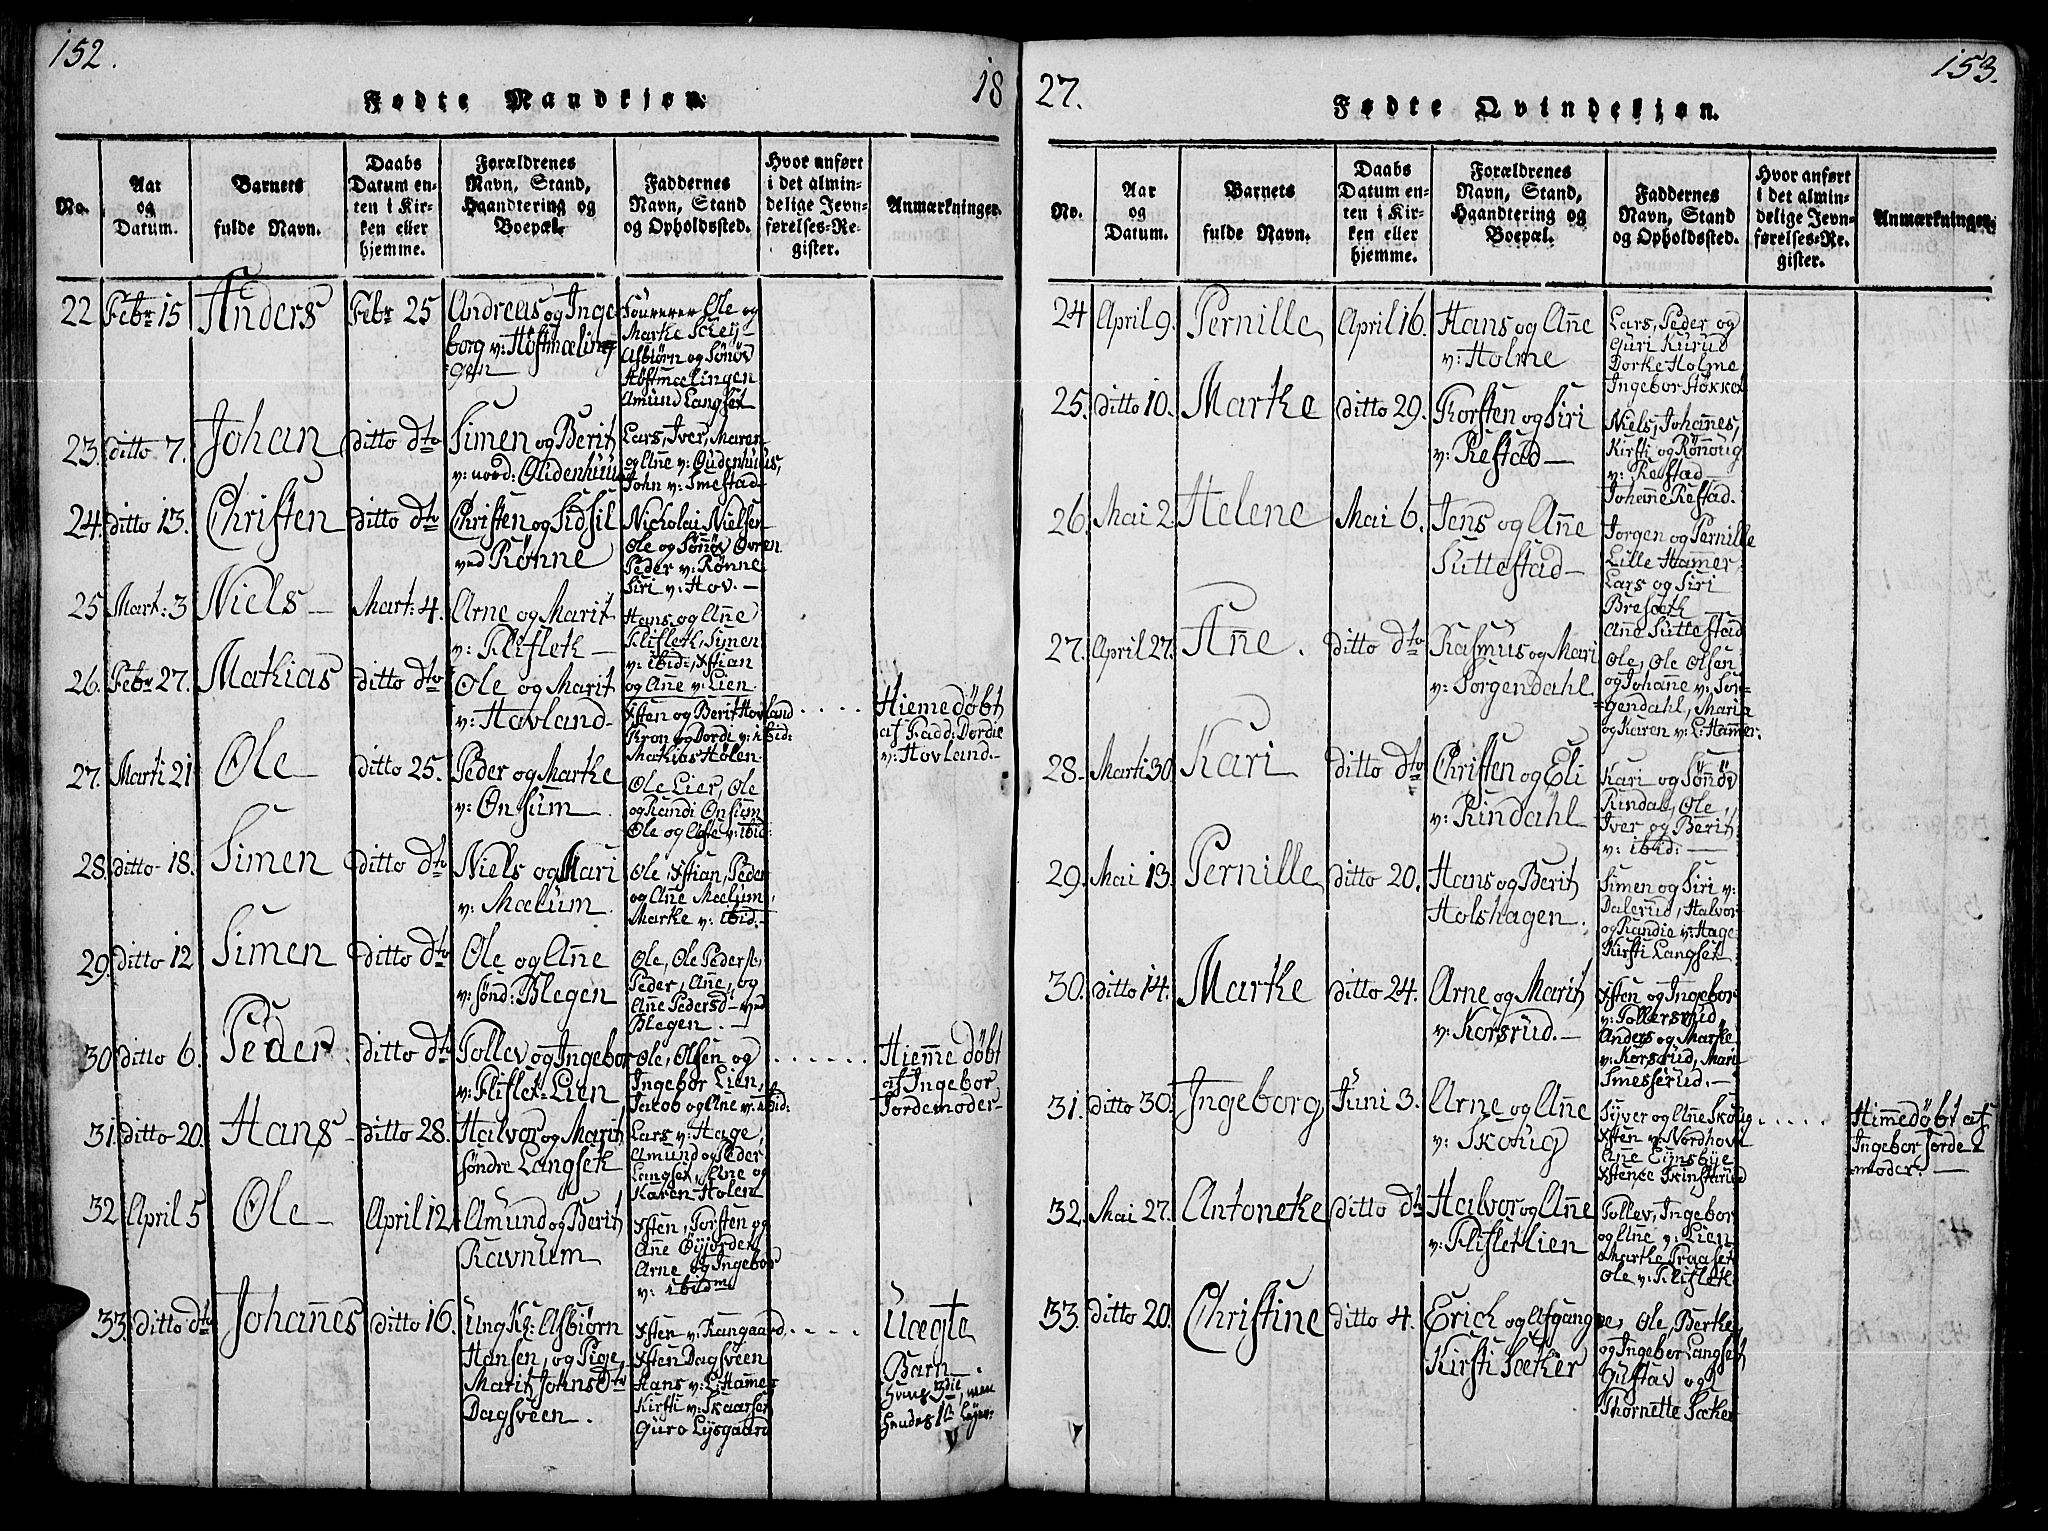 152.
18
Fødte Mandkjøn.
No.
Aar
og
Datum.
Barnets
fulde Navn.
Daabs
Datum en-
ten i Kir-
ken eller
hjemme.
Forældrenes
Navn, Stand,
Haandtering og
Boepæl.
Faddernes
Navn, Stand
og Opholdssted.
Hvor anført
i det almin-
delige Jevn-
førelses-Re-
gister.
Anmærkninger.
22
Febr 15
Anders
Febr 25
Andreas og Inge
borg v: Höftmæling
gen
Ole og
Marte
Asbiørn og Sönöv
Höftmælingen
Amund Langset
23.
ditto 7.
Johan
ditto dto
Simen og Berit
v: nord: Oudenhuus
Lars, Iver, Maren
og Añe v: Oudenhuus,
John v: Smestad
24.
ditto 13.
Christen
ditto dto
Christen og Sidsil
ved Rønne
Nicholai Nielsen
Ole og Söñöv Ovren
Peder v: Rønne
Siri v: Hov.
25
Mart: 3
Niels
Mart: 4.
Arne og Marit
v: Flifletk
Hans og Añe
Flifletk, Simen
v: ibid:, Xstian
og Añe v: Lien
26.
Febr 27.
Mathias
ditto dto
Ole og Marit
v: Havland
Xsten og Berit Hovland
Kron og Dordi v: ibid:
Mathias Holen
Hiemedøbt
af Fadd: Dordie
v: Hovland.
27.
Marti 21
Ole
ditto 25.
Peder og Marthe
v: Onsum
Ole Lier, Ole
og Randi Onsum
Ole og v: ibid:
28.
ditto 18.
Simen
ditto dto
Niels og Mari
v: Mælum.
Ole, Xstian, Peder
og Añe Mælum,
Marthe v: ibid:
29.
ditto 12
Simen
ditto dto
Ole og Añe
v: sønd: Blegen
Ole, Ole Peders:,
Peder, Añe, og
Añe Pedersd ved
Blegen.
30
ditto 6.
Peder
ditto dto
Tollev og Ingebor
v: Fliflet-Lien
Ole, Olsen og
Ingebor Lien,
Jakob og Añe v: ibid:
Hiem̃e døbt
af Ingebor
Jordemoder
31.
ditto 20.
Hans
ditto 28.
Halvor og Marit
søndre Langseth
Lars v: Hage,
Amund og Peder
Langset, Añe og
Karen Holen
32
April 5
Ole
April 12
Amund og Berit
Ravnum
Xsten, Torsten og
Añe Øyjorden
Arne og Ingebor
v: ibidm
33.
ditto dto
Johañes
ditto 16.
Ung K: Asbiørn
Hansen, og Pige,
Marit Johnsdtr
Dagsveen.
Xsten v: Rangaard
Xsten Dagsveen
Hans v: L:Ham̃er
Kirsti v: Skaarset
Guro Lysgaard
Uægte
Barn.
hans 3die, men
hendes 1te
27.
153.
Fødte Qvindekjøn.
No.
Aar
og
Datum.
Barnets
fulde Navn.
Daabs
Datum en-
ten i Kir-
ken eller
hjemme.
Forældrenes
Navn, Stand,
Haandtering og
Boepæl.
Faddernes
Navn, Stand
og Opholdssted.
Hvor anført
i det almin-
delige Jevn-
førelses-Re-
gister.
Anmærkninger.
24
April 9.
Pernille
April 16.
Hans og Añe
v: Holme
Lars, Peder og
Guri Kurud
Dorthe Holme
Ingebor Høkker
25.
ditto 10.
Marthe
ditto 29.
Torsten og Siri
v: Restad
Niels, Johañes,
Kirsti og Rønnoug
v: Restad
Johañe Restad.
26.
Mai 2.
Helene
Mai 6.
Jens og Añe
Suttestad
Jorgen og Pernille
Lille Ham̃er
Lars og Siri
Breseth
Añe Suttestad
27.
April 27.
Añe.
ditto dto
Rasmus og Mari
v: Sorgendahl
Ole, Ole Olsen
og Johañe v: Sor-
gendahl, Maria
og Karen v: L:Ham̃er.
28.
Marti 30.
Kari
ditto dto
Christen og Eli
v: Rindahl
Kari og Söñöv
Rindal, Ole,
Iver og Berit
v: ibid:
29.
Mai 13.
Pernille
ditto 20.
Hans og Berit
Holshagen.
Simen og Siri v:
Dalerud, Halvor
og Randie v: Hage
Kirsti Langset
30.
ditto 14.
Marthe
ditto 24.
Arne og Marit
v: Korsrud.
Xsten og Ingebor
v: Tollersrud
Anders og Marthe
v: Korsrud, Mari
Smesserud.
31.
ditto 30.
Ingeborg
Juni 3.
Arne og Añe
v: Skoug
Syver og Añe Skoug
Xsten v: Nordhove
Añe Eynsbye
Xstense
Him̃edøbt af
Ingebor Jorde
moder.
32.
Mai 27.
Antonethe
ditto dto
Halvor og Añe
v: Fliflet Lien
Tollev, Ingebor
og Añe v: Lien
Marthe Praaset
Ole v: Fliflet
33.
ditto 20.
Christine
ditto 4.
Erich og Afgangne
Kirsti Sæther
Ole, Berthe,
og Ingebor Langset
Gustav og
Thornette Sæther